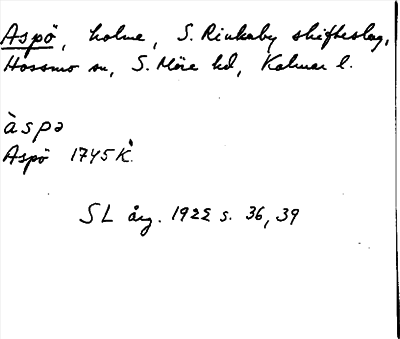 Aspö, holme, S. Rinkaby skifteslag,
Hossmo sn, S. Möre hd, Kalmar l.
àspə
Aspö 1745 K.
SL årg. 1922 s. 36, 39